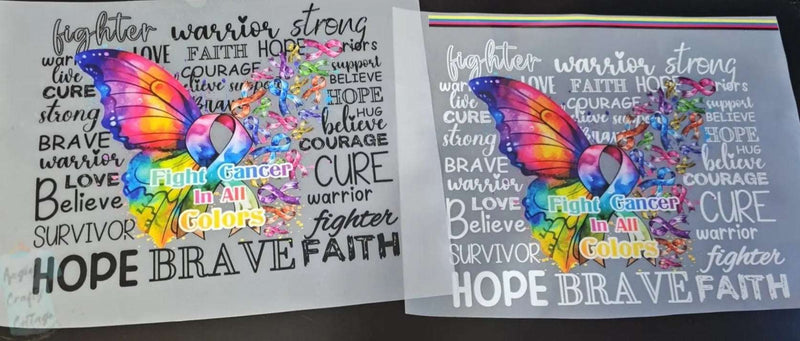 fighter warrior strong
warriors LOVE FAITH HOPE warriors
live COURAGE support
CURE believe support BELIEVE
strong Brave HOPE
HUG
BRAVE believe
warrior COURAGE
LOVE CURE
Believe Fight Cancer warrior
In All
SURVIVOR Colors fighter
HOPE BRAVE FAITH
Angie's
Crafty
Cottage
fighter warrior strong
LOVE FAITH HOPE
live COURAGE support
CURE believe support BELIEVE
strong Brave HOPE
HUG
BRAVE believe
warrior COURAGE
LOVE CURE
Believe Fight Cancer warrior
In All
SURVIVOR Colors fighter
HOPE BRAVE FAITH